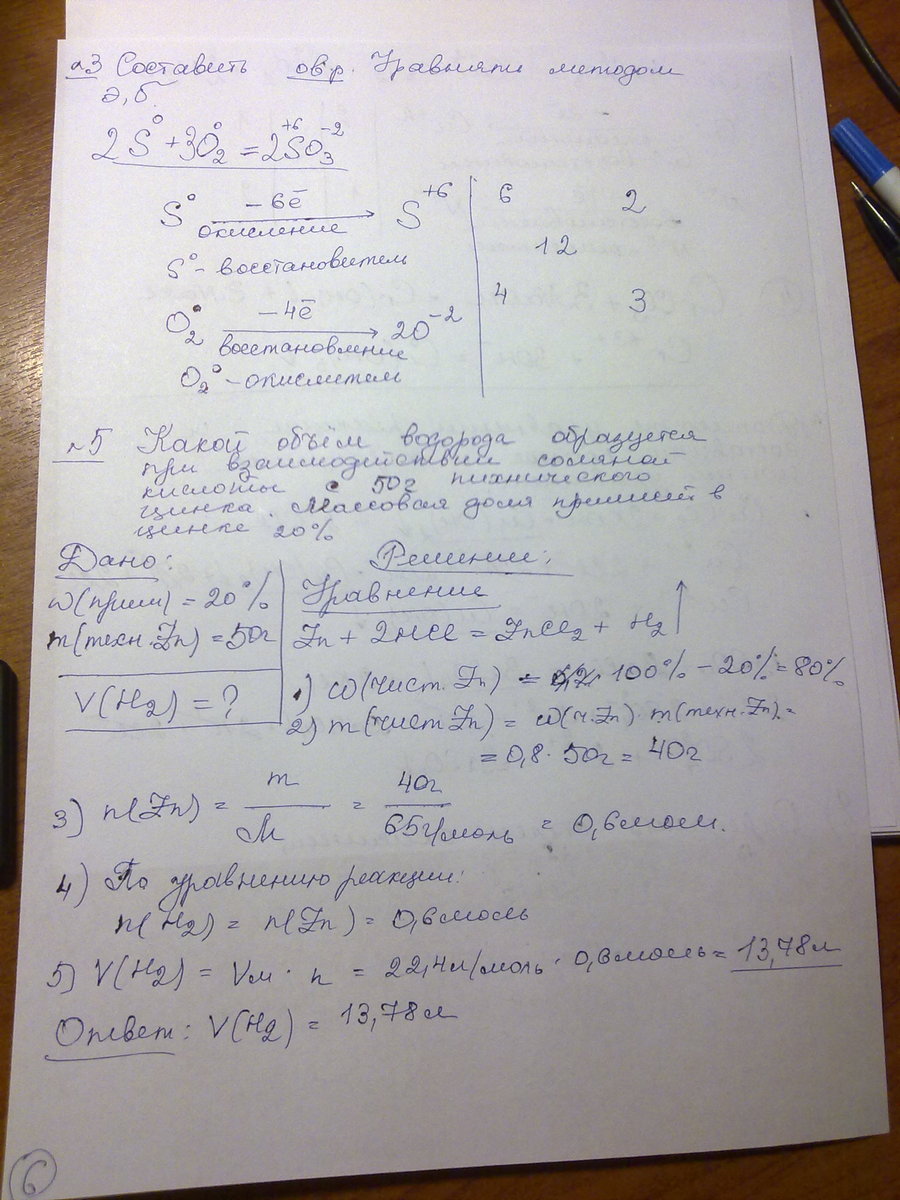 №3 Составить овр. Уравняти методом
э,б.
2S⁰ + 3O₂⁰ = 2S⁺⁶O₃⁻²
S⁰ —6ē→ S⁺⁶ | 6 2
окисление
12
S⁰ - восстановитель
O₂⁰ —4ē→ 2O⁻² | 4 3
восстановление
O₂⁰ - окислитель
№5 Какой объём водорода образуется
при взаимодействии соляной
кислоты с 50г технического
цинка. Массовая доля примесей в
цинке 20%
Дано: Решение:
ω(прим) = 20% Уравнение
m(техн. Zn) = 50г Zn + 2HCl = ZnCl₂ + H₂↑
V(H₂) = ? 1) ω(чист. Zn) = 100% - 20% = 80%
2) m(чист Zn) = ω(ч. Zn) · m(техн. Zn) =
= 0,8 · 50г = 40г
3) n(Zn) = m/M = 40г/65г/моль = 0,6моль.
4) По уравнению реакции:
n(H₂) = n(Zn) = 0,6моль
5) V(H₂) = Vм · n = 22,4л/моль · 0,6моль = 13,78л
Ответ: V(H₂) = 13,78л
6